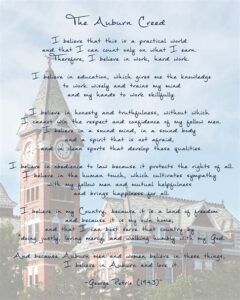 The Auburn Creed
I believe that this is a practical world
and that I can count only on what I earn.
Therefore, I believe in work, hard work.
I believe in education, which gives me the knowledge
to work wisely and trains my mind
and my hands to work skillfully.
I believe in honesty and truthfulness, without which
I cannot win the respect and confidence of my fellow men.
I believe in a sound mind, in a sound body
and a spirit that is not afraid,
and in clean sports that develop these qualities.
I believe in obedience to law because it protects the rights of all.
I believe in the human touch, which cultivates sympathy
with my fellow men and mutual helpfulness
and brings happiness for all.
I believe in my Country, because it is a land of freedom
and because it is my own home,
and that I can best serve that country by
doing justly, loving mercy, and walking humbly with my God.
And because Auburn men and women believe in these things,
I believe in Auburn and love it.
-George Petrie (1943)